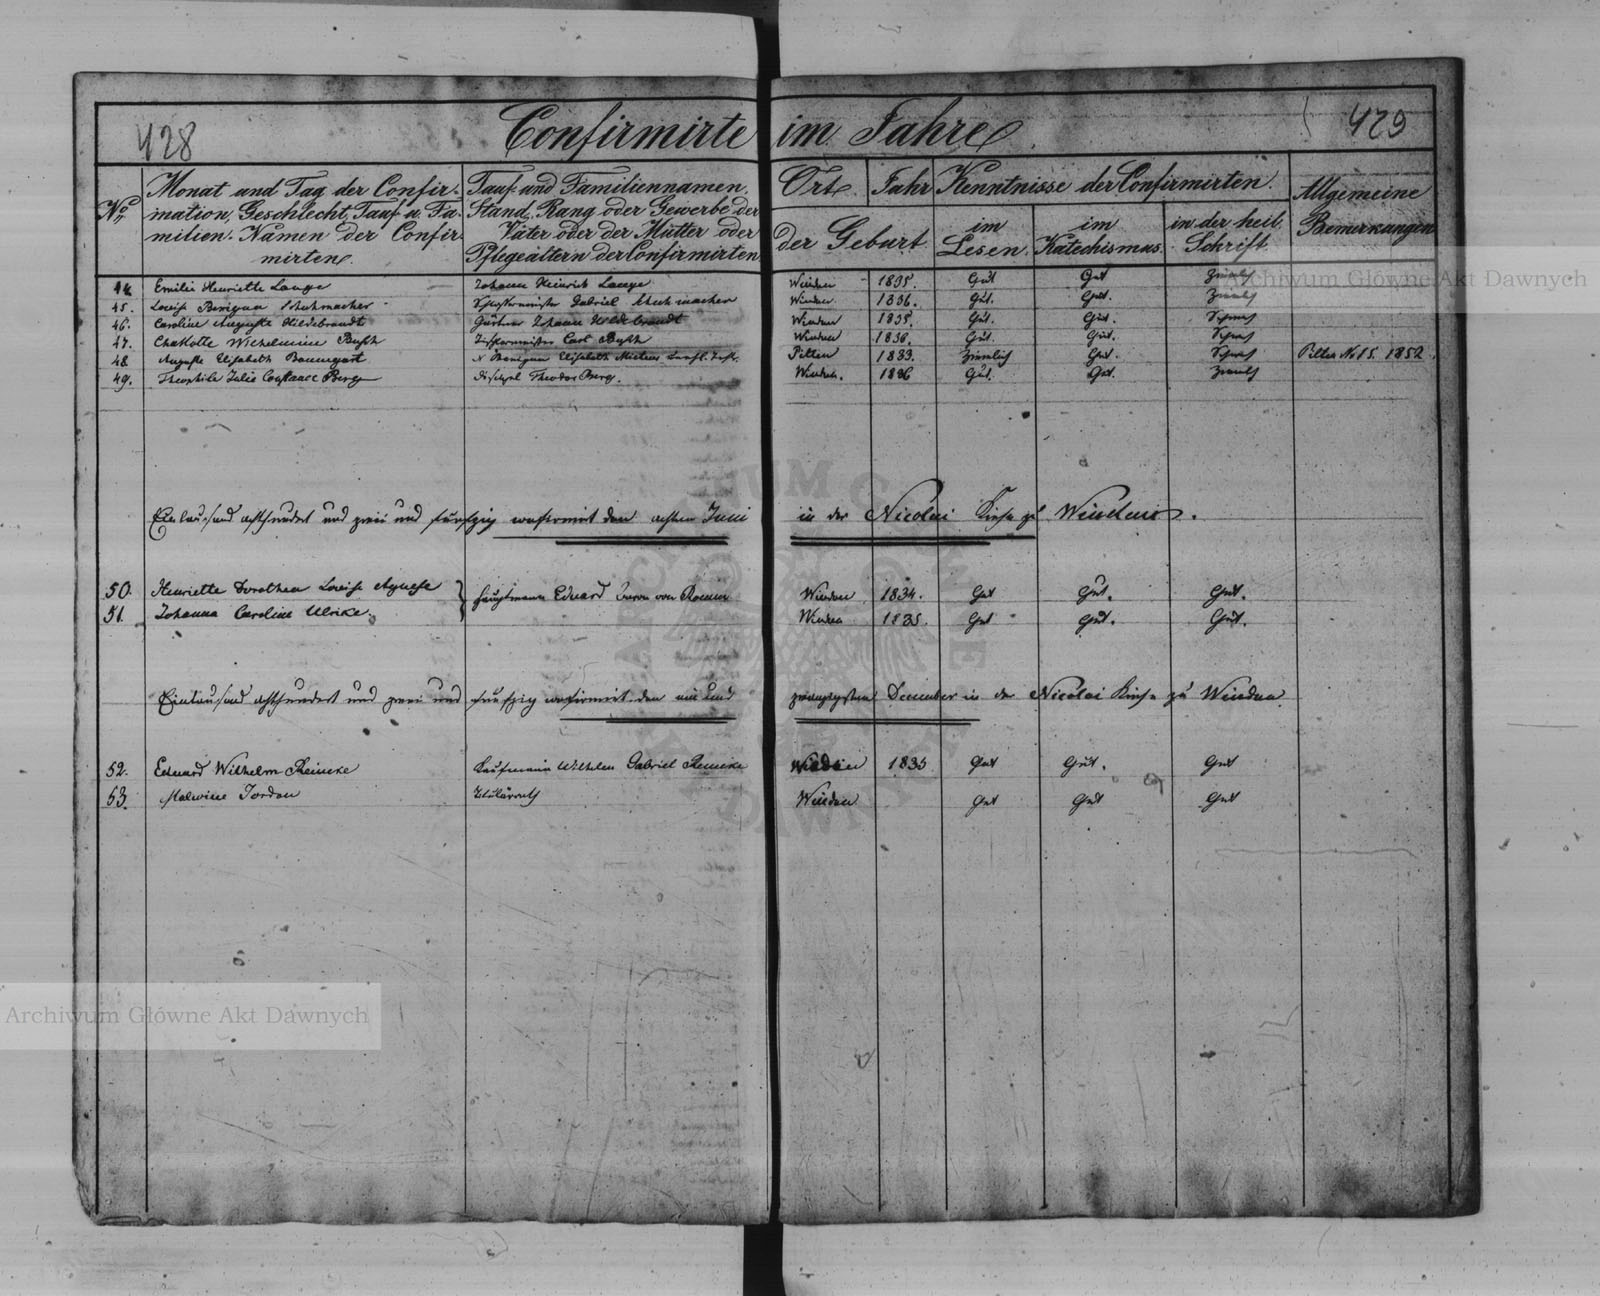 428
Confirmirte im Jahre
429
No
Monat und Tag der Confir-
mation, Geschlecht, Tauf- u. Fa-
milien-Namen der Confir-
mirten.
Tauf- und Familiennamen,
Stand, Rang oder Gewerbe der
Väter oder der Mütter oder
Pflegeältern der Confirmirten
Ort
Jahr
der Geburt
Kenntnisse der Confirmirten.
im
Lesen.
im
Katechismus.
in der heil.
Schrift
Allgemeine
Bemerkungen
44. Emilie Henriette Lange Johann Heinrich Lange Windau 1835. Gut Gut Zieml
45. Louise Benigna Schuhmacher Gabriel Schuhmacher Windau 1836. Gut. Gut. Zieml
46. Caroline Auguste Hildebrandt Gärtner Johann Hildebrandt Windau 1835. Gut. Gut.
47. Charlotte Wilhelmine Busch Tischlermeister Carl Busch Windau 1836. Gut. Gut.
48. Auguste Elisabeth Baumgart Benigna Elisabeth Pilten 1833. Ziemlich Gut. Pilten No 15. 1852.
49. Theophile Julie Constance Berg Theodor Berg. Windau. 1836 Gut. Gut. Zieml
Eintausend achthundert und zwei und fünfzig confirmirt den achten Juni in der Nicolai Kirche zu Windau.
50. Henriette Dorothea Louise Agnese Hauptmann Eduard Baron von Windau 1834. Gut Gut. Gut.
51. Johanna Caroline Ulrike. Windau 1835. Gut Gut. Gut.
Eintausend achthundert und zwei und fünfzig confirmirt den neun und zwanzigsten December in der Nicolai Kirche zu Windau.
52. Eduard Wilhelm Reincke Kaufmann Wilhelm Gabriel Reincke Windau 1835 Gut Gut. Gut
53. Malwine Jordan Titulärrath Windau Gut Gut Gut
Archiwum Główne Akt Dawnych
Archiwum Główne Akt Dawnych